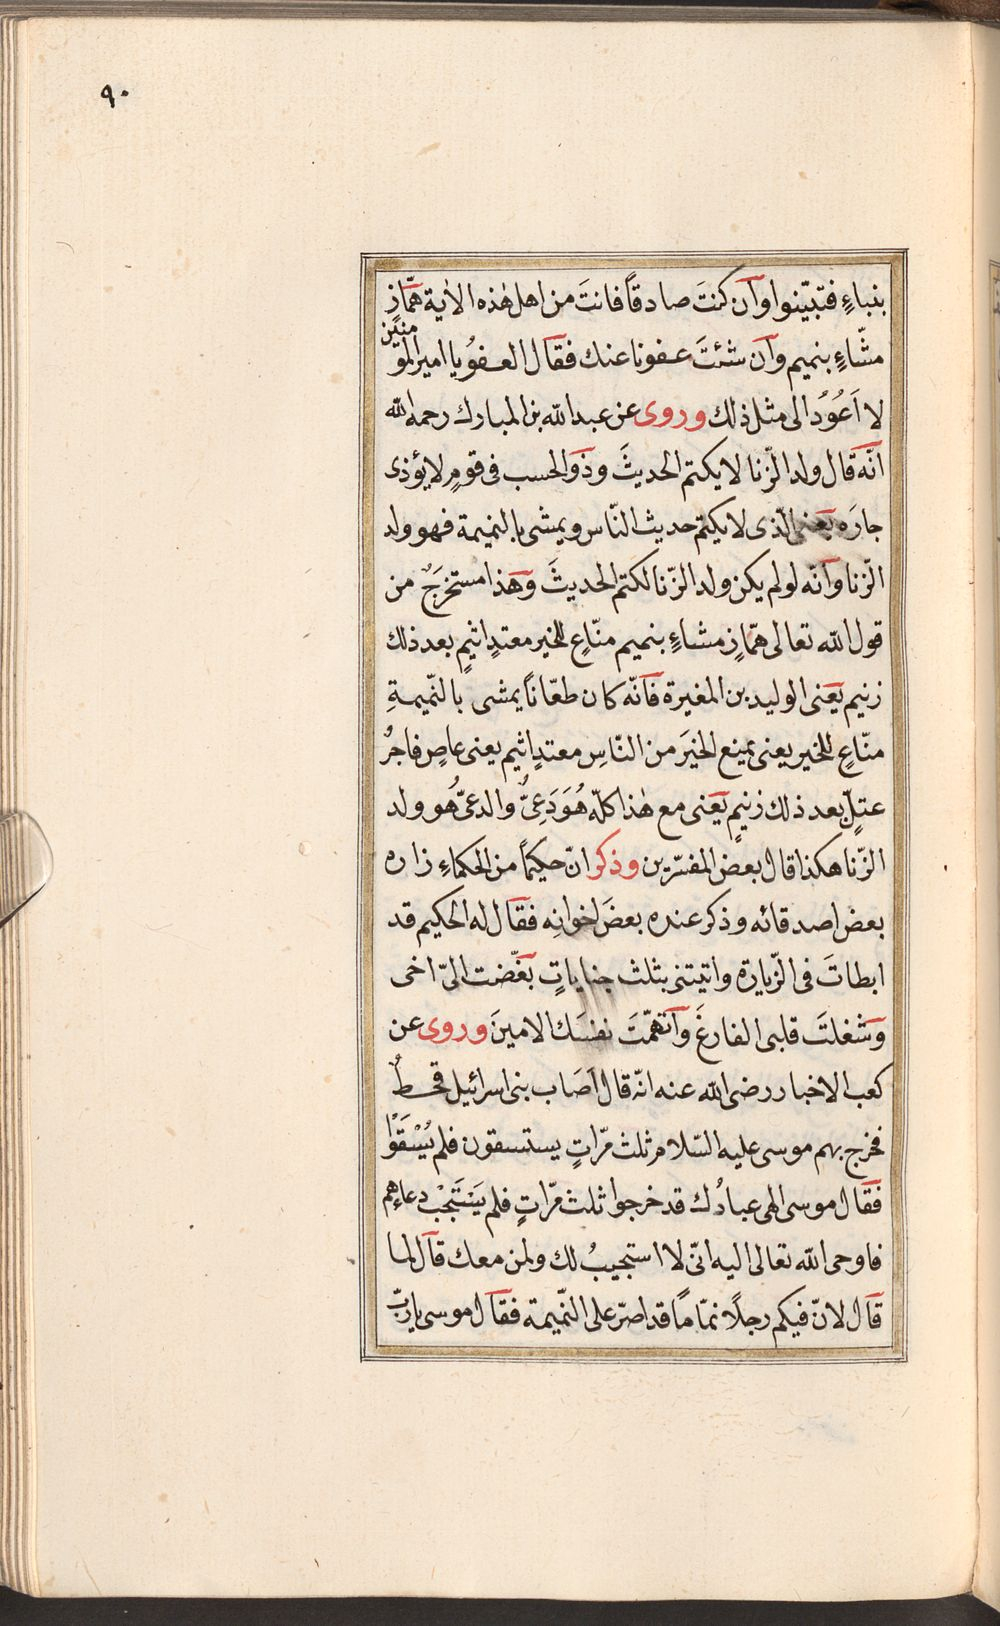 ٩٠
بنباءٍ فتبيّنوا وان كنتَ صادقاً فانتَ من اهل هٰذه الاية همّازٍ
مشّاءٍ بنميم وان شئتَ عفونا عنك فقال العفوُ يا امير المو
منين
لا اَعُوُدُ الى مثل ذلك وروى عن عبد الله بن المبارك رحمه الله
انّه قال ولد الزّنا لا يكتم الحديثَ وذو الحسب فى قومٍ لا يؤذى
جارَه يعنى الّذى لا يكتم حديث النّاس ويمشى بالنميمة فهو ولد
الزّنا وانّه لو لم يكن ولد الزّنا لكتم الحديثَ وهٰذا مستخرَجٌ من
قول الله تعالى همّازٍ مشاءٍ بنميم منّاعٍ للخير معتدٍ اثيمٍ بعد ذلك
زنيم يعنى الوليد بن المغيرة فانّه كان طعّاناً يمشى بالنّميمةِ
منّاعٍ للخير يعنى يمنع الخيرَ من النّاسِ معتدٍ اثيم يعنى عاصٍ فاجرٌ
عتلٍّ بعد ذلك زنيمٍ يعنى مع هٰذا كلّه هُوَ دَعِىٌّ والدعىُّ هُو ولد
الزّنا هكذا قال بعض المفسّرين وذكر انّ حكيمًا من الحكماءِ زاره
بعض اصدقائه وذكر عنده بعضَ اخوانِه فقال له الحكيم قد
ابطاتَ فى الزّيارة واتيتنى بثلث جناياتٍ بغّضت الىّ اخى
وشغلتَ قلبى الفارغَ واتهمّتَ نفسَك الامينَ وروى عن
كعب الاخبار رضى الله عنه انّه قال اَصَاب بنى اسرائيل قحطٌ
فخرج بهم موسى عليه السّلام ثلث مرّاتٍ يستسقون فلم يُسْقَوْا
فقال موسى الهى عبادُك قد خرجوا ثلث مرّاتٍ فلم يَسْتَجِبْ دعاءهم
فاوحى الله تعالى اليه انّى لا استجيبُ لك ولمن معك قال لما
قال لانّ فيكم رجلًا نمّامًا قد اصرّ على النّميمة فقال موسى يا ربّ